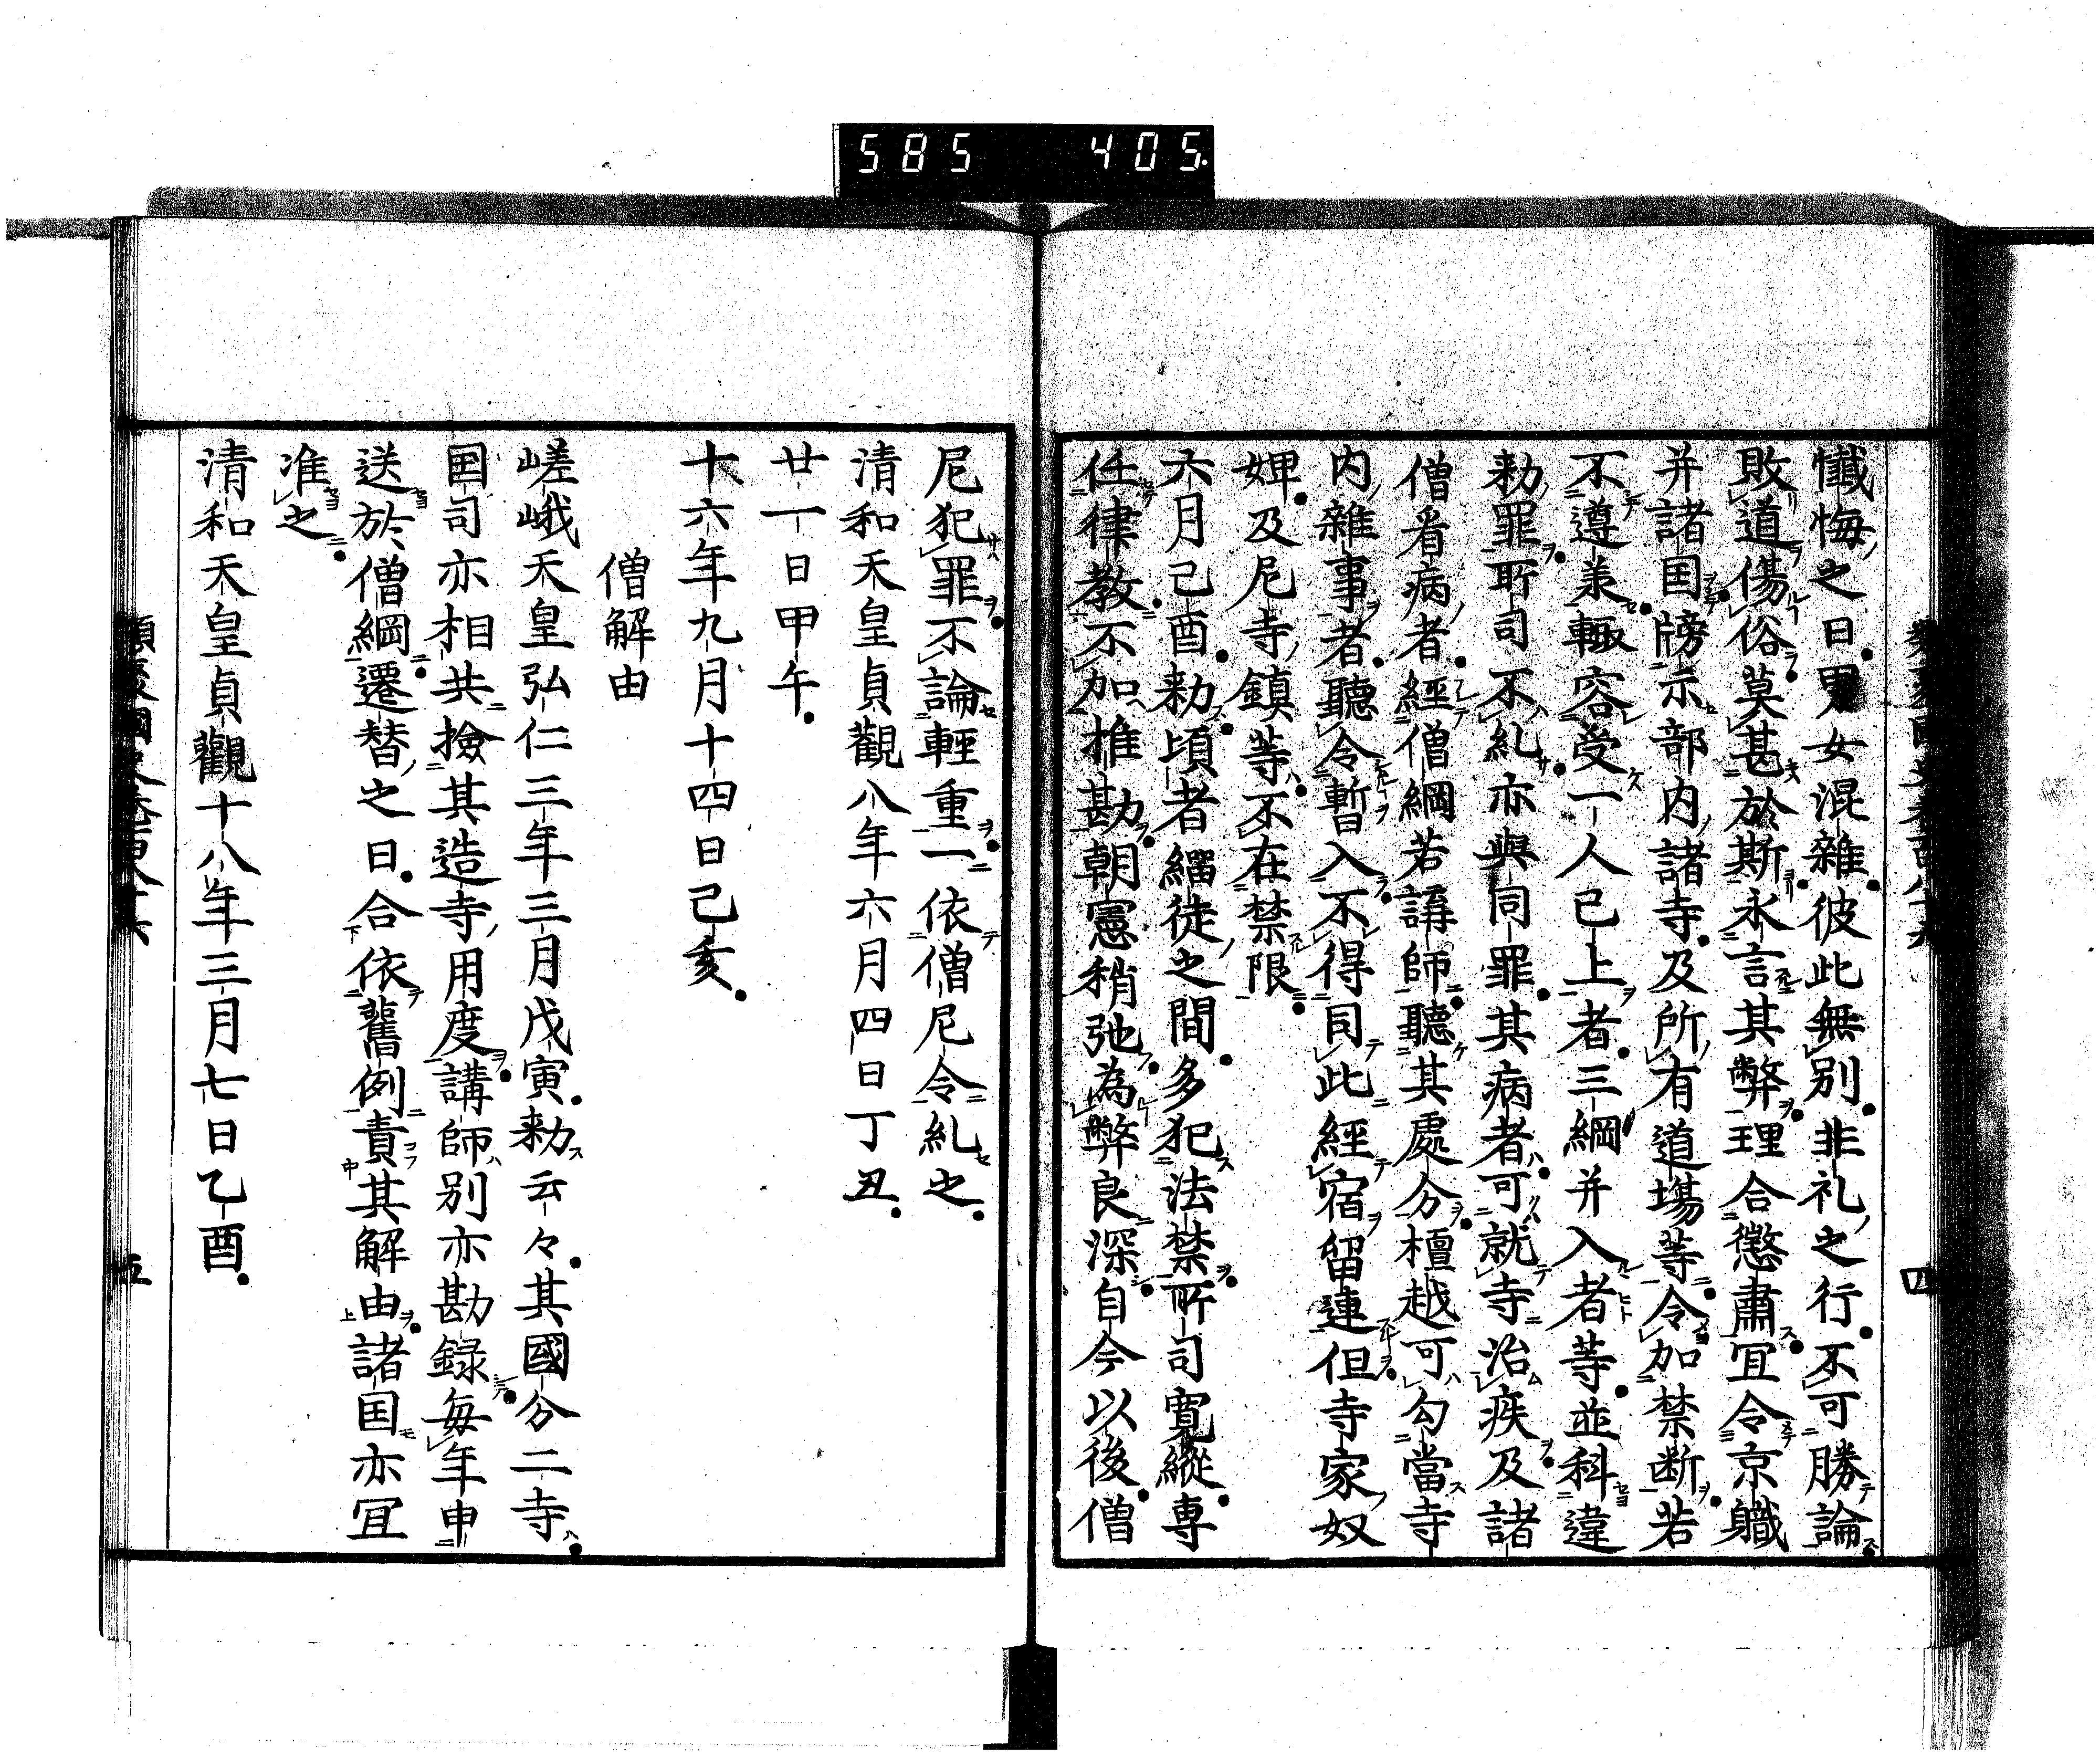 585 405
懴悔之日男女混雜彼此無別非礼之行不可勝論
敗道傷俗莫甚於斯永言其弊理合懲肅宜令京職
并諸国牓示部内諸寺及所有道塲等令加禁断若
不遵羕輙容受一人已上者三綱并入者等並科違
勅罪所司不糺亦與同罪其病者可就寺治疾及諸
僧看病者經僧綱若講師聽其處分檀越可勾當寺
内雜事者聽令暫入不得因此經宿留連但寺家奴
婢及尼寺鎮等不在禁限
六月己酉勅頃者緇徒之間多犯法禁所司寛縱専
任律教不加推勘朝憲稍弛為弊良深自今以後僧
四
尼犯罪不論輕重一依僧尼令糺之
清和天皇貞觀八年六月四日丁丑
廿一日甲午
十六年九月十四日己亥
僧解由
嵯峨天皇弘仁三年三月戊寅勅云々其國分二寺
国司亦相共撿其造寺用度講師別亦勘録毎年申
送於僧綱遷替之日合依舊例責其解由諸国亦宜
准之
清和天皇貞觀十八年三月七日乙酉
五